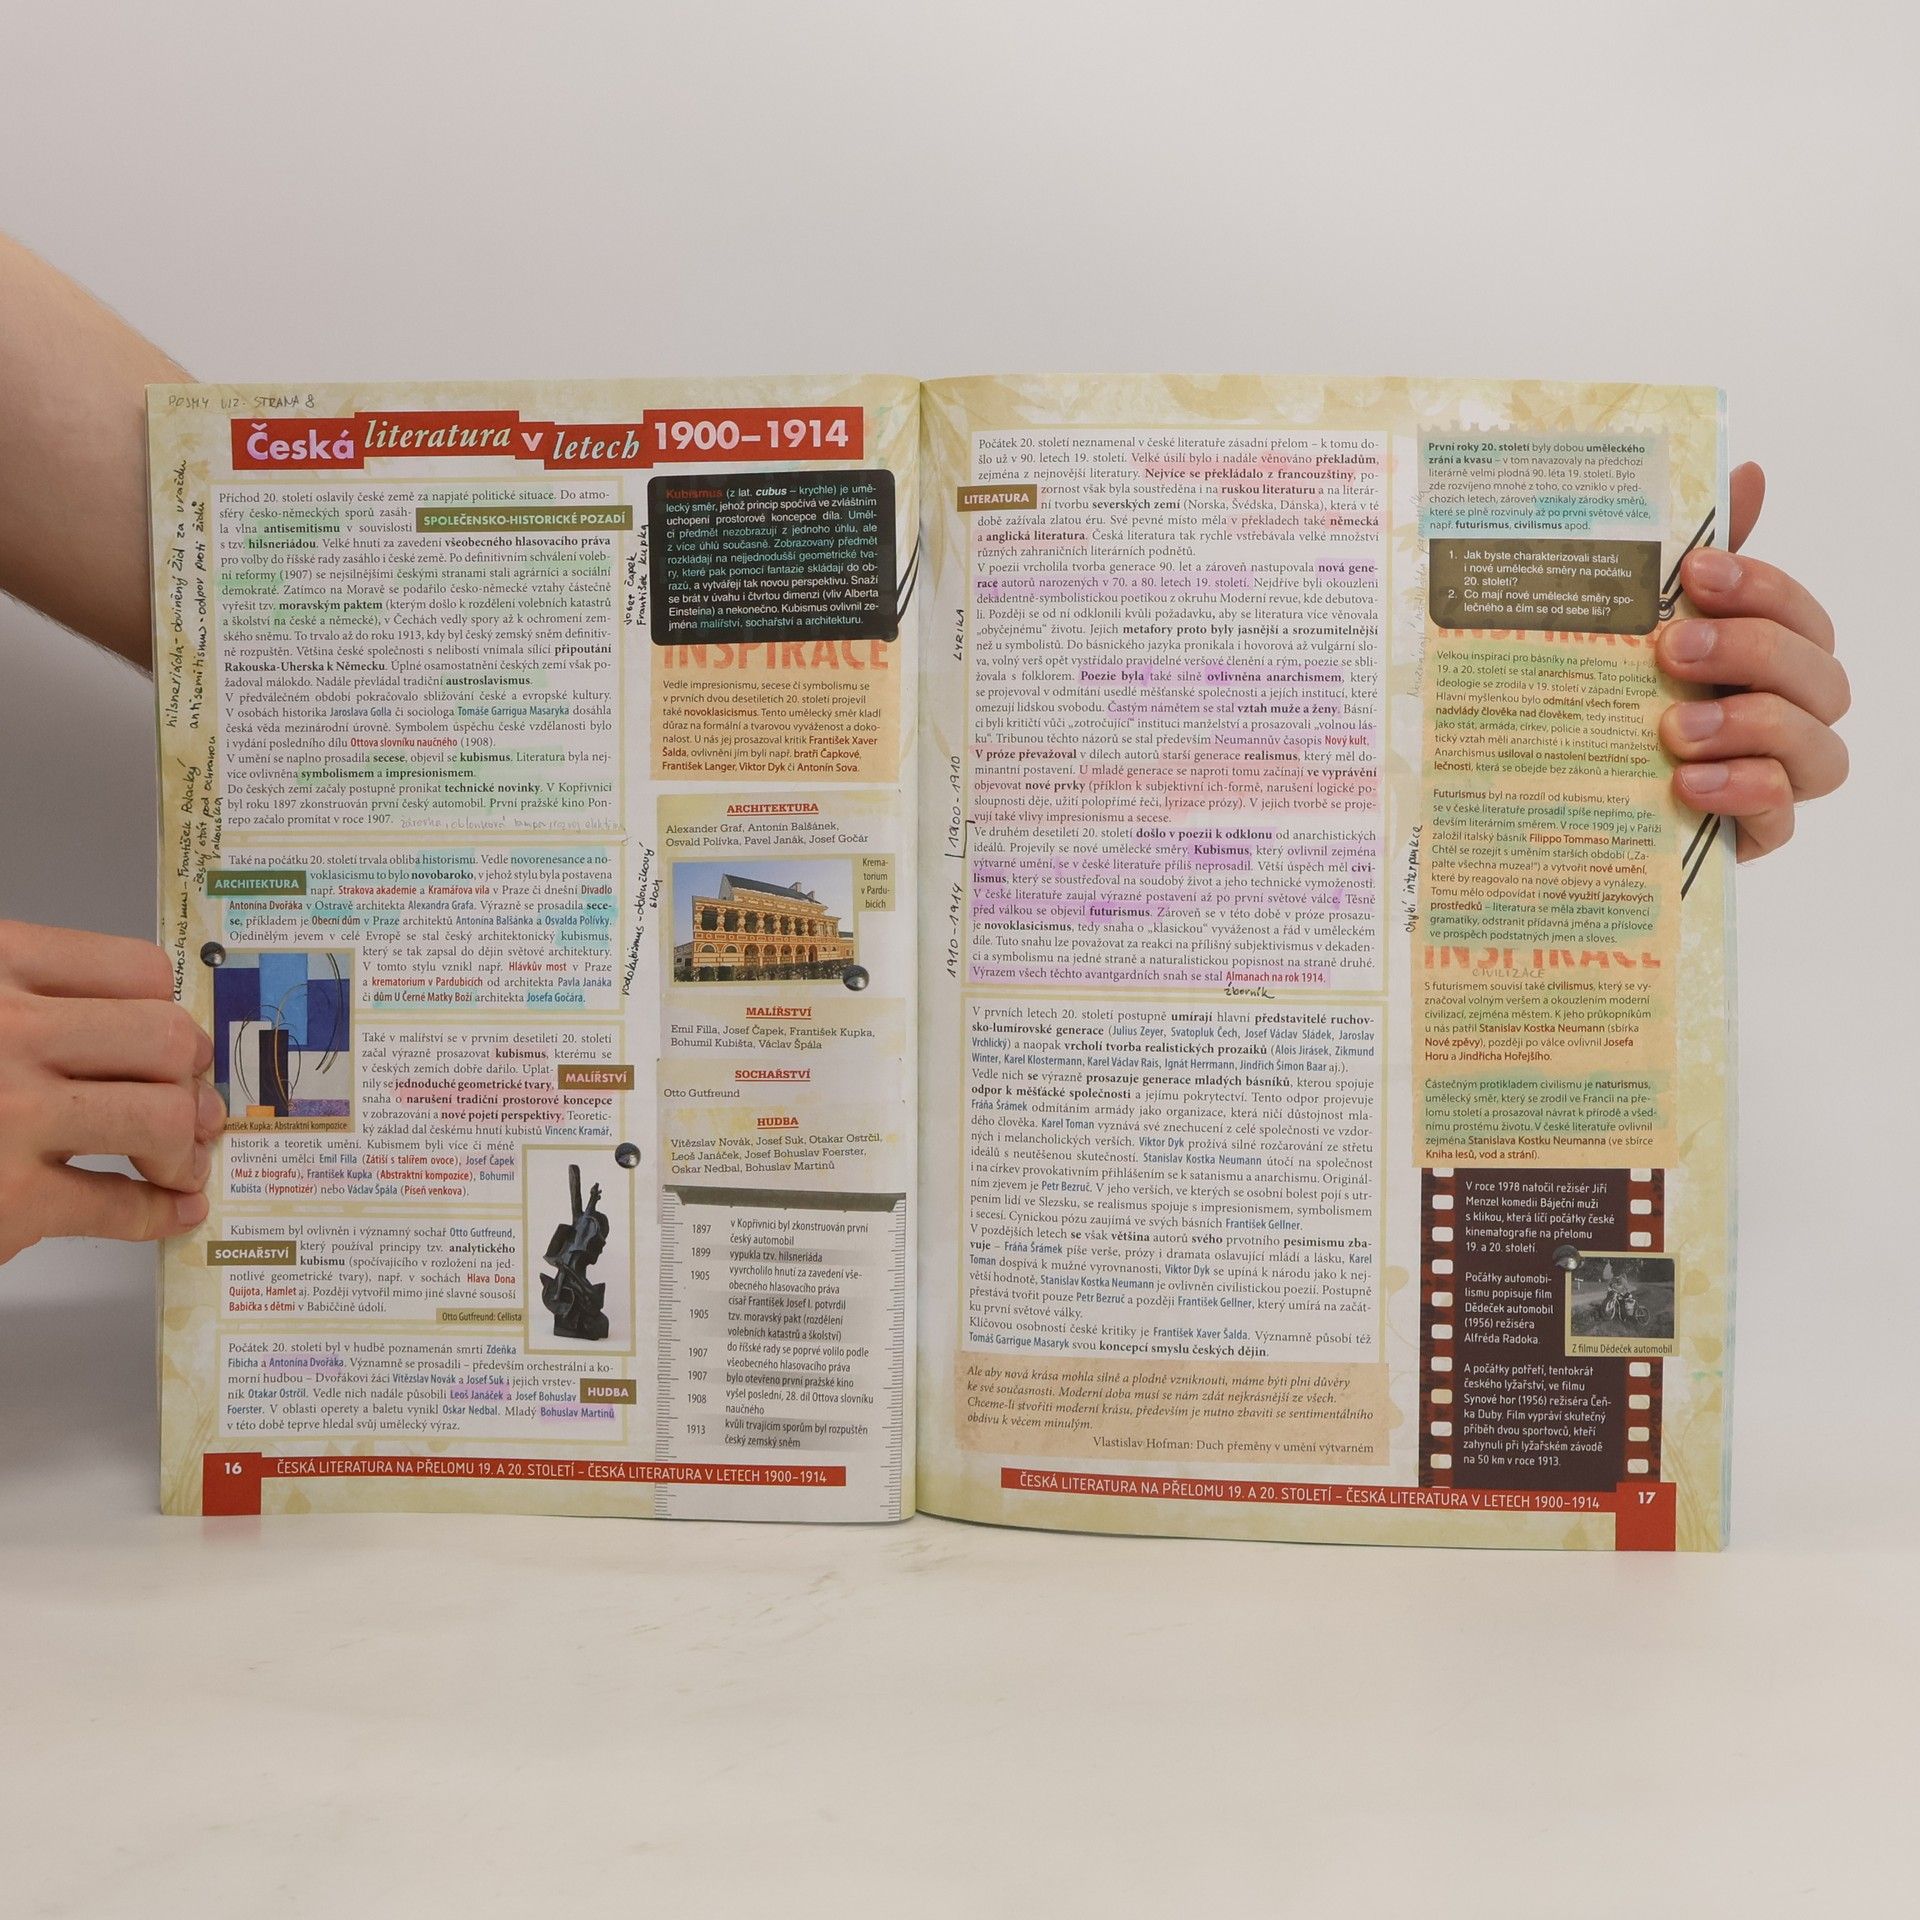 POJMY VIZ. STRANA 8
Česká literatura v letech 1900–1914
Příchod 20. století oslavily české země za napjaté politické situace. Do atmo-
sféry česko-německých sporů zasáh-
la vlna antisemitismu v souvislosti
s tzv. hilsneriádou. Velké hnutí za zavedení všeobecného hlasovacího práva
pro volby do říšské rady zasáhlo i české země. Po definitivním schválení voleb-
ní reformy (1907) se nejsilnějšími českými stranami stali agrárníci a sociální
demokraté. Zatímco na Moravě se podařilo česko-německé vztahy částečně
vyřešit tzv. moravským paktem (kterým došlo k rozdělení volebních katastrů
a školství na české a německé), v Čechách vedly spory až k ochromení zem-
ského sněmu. To trvalo až do roku 1913, kdy byl český zemský sněm definitiv-
ně rozpuštěn. Většina české společnosti s nelibostí vnímala sílící připoutání
Rakouska-Uherska k Německu. Úplné osamostatnění českých zemí však po-
žadoval málokdo. Nadále převládal tradiční austroslavismus.
V předválečném období pokračovalo sbližování české a evropské kultury.
V osobách historika Jaroslava Golla či sociologa Tomáše Garrigua Masaryka dosáhla
česká věda mezinárodní úrovně. Symbolem úspěchu české vzdělanosti bylo
i vydání posledního dílu Ottova slovníku naučného (1908).
V umění se naplno prosadila secese, objevil se kubismus. Literatura byla nej-
více ovlivněna symbolismem a impresionismem.
Do českých zemí začaly postupně pronikat technické novinky. V Kopřivnici
byl roku 1897 zkonstruován první český automobil. První pražské kino Pon-
repo začalo promítat v roce 1907.
SPOLEČENSKO-HISTORICKÉ POZADÍ
Také na počátku 20. století trvala obliba historismu. Vedle novorenesance a no-
voklasicismu to bylo novobaroko, v jehož stylu byla postavena
např. Strakova akademie a Kramářova vila v Praze či dnešní Divadlo
Antonína Dvořáka v Ostravě architekta Alexandra Grafa. Výrazně se prosadila sece-
se, příkladem je Obecní dům v Praze architektů Antonína Balšánka a Osvalda Polívky.
Ojedinělým jevem v celé Evropě se stal český architektonický kubismus,
který se tak zapsal do dějin světové architektury.
V tomto stylu vznikl např. Hlávkův most v Praze
a krematorium v Pardubicích od architekta Pavla Janáka
či dům U Černé Matky Boží architekta Josefa Gočára.
ARCHITEKTURA
František Kupka: Abstraktní kompozice
Také v malířství se v prvním desetiletí 20. století
začal výrazně prosazovat kubismus, kterému se
v českých zemích dobře dařilo. Uplat-
nily se jednoduché geometrické tvary,
snaha o narušení tradiční prostorové koncepce
v zobrazování a nové pojetí perspektivy. Teoretic-
ký základ dal českému hnutí kubistů Vincenc Kramář,
historik a teoretik umění. Kubismem byli více či méně
ovlivněni umělci Emil Filla (Zátiší s talířem ovoce), Josef Čapek
(Muž z biografu), František Kupka (Abstraktní kompozice), Bohumil
Kubišta (Hypnotizér) nebo Václav Špála (Píseň venkova).
MALÍŘSTVÍ
Kubismem byl ovlivněn i významný sochař Otto Gutfreund,
který používal principy tzv. analytického
kubismu (spočívajícího v rozložení na jed-
notlivé geometrické tvary), např. v sochách Hlava Dona
Quijota, Hamlet aj. Později vytvořil mimo jiné slavné sousoší
Babička s dětmi v Babiččině údolí.
SOCHAŘSTVÍ
Otto Gutfreund: Cellista
Počátek 20. století byl v hudbě poznamenán smrtí Zdeňka
Fibicha a Antonína Dvořáka. Významně se prosadili – především orchestrální a ko-
morní hudbou – Dvořákovi žáci Vítězslav Novák a Josef Suk i jejich vrstev-
ník Otakar Ostrčil. Vedle nich nadále působili Leoš Janáček a Josef Bohuslav
Foerster. V oblasti operety a baletu vynikl Oskar Nedbal. Mladý Bohuslav Martinů
v této době teprve hledal svůj umělecký výraz.
HUDBA
hilsneriáda - obviněný žid za vraždu
antisemitismus - odpor proti židů
austroslavismus – František Palacký
- český stát pod ochranou
Rakouska
Josef Čapek
František Kupka
rondokubismus - obloučkový
sloh
Kubismus (z lat. cubus – krychle) je umě-
lecký směr, jehož princip spočívá ve zvláštním
uchopení prostorové koncepce díla. Uměl-
ci předmět nezobrazují z jednoho úhlu, ale
z více úhlů současně. Zobrazovaný předmět
rozkládají na nejjednodušší geometrické tva-
ry, které pak pomocí fantazie skládají do ob-
razu, a vytvářejí tak novou perspektivu. Snaží
se brát v úvahu i čtvrtou dimenzi (vliv Alberta
Einsteina) a nekonečno. Kubismus ovlivnil ze-
jména malířství, sochařství a architekturu.
INSPIRACE
Vedle impresionismu, secese či symbolismu se
v prvních dvou desetiletích 20. století projevil
také novoklasicismus. Tento umělecký směr kladl
důraz na formální a tvarovou vyváženost a doko-
nalost. U nás jej prosazoval kritik František Xaver
Šalda, ovlivněni jím byli např. bratři Čapkové,
František Langer, Viktor Dyk či Antonín Sova.
ARCHITEKTURA
Alexander Graf, Antonín Balšánek,
Osvald Polívka, Pavel Janák, Josef Gočár
Krema-
torium
v Pardu-
bicích
MALÍŘSTVÍ
Emil Filla, Josef Čapek, František Kupka,
Bohumil Kubišta, Václav Špála
SOCHAŘSTVÍ
Otto Gutfreund
HUDBA
Vítězslav Novák, Josef Suk, Otakar Ostrčil,
Leoš Janáček, Josef Bohuslav Foerster,
Oskar Nedbal, Bohuslav Martinů
1897 v Kopřivnici byl zkonstruován první
český automobil
1899 vypukla tzv. hilsneriáda
1905 vyvrcholilo hnutí za zavedení vše-
obecného hlasovacího práva
1905 císař František Josef I. potvrdil
tzv. moravský pakt (rozdělení
volebních katastrů a školství)
1907 do říšské rady se poprvé volilo podle
všeobecného hlasovacího práva
1907 bylo otevřeno první pražské kino
1908 vyšel poslední, 28. díl Ottova slovníku
naučného
1913 kvůli trvajícím sporům byl rozpuštěn
český zemský sněm
16 ČESKÁ LITERATURA NA PŘELOMU 19. A 20. STOLETÍ – ČESKÁ LITERATURA V LETECH 1900–1914
Počátek 20. století neznamenal v české literatuře zásadní přelom – k tomu do-
šlo už v 90. letech 19. století. Velké úsilí bylo i nadále věnováno překladům,
zejména z nejnovější literatury. Nejvíce se překládalo z francouzštiny, po-
zornost však byla soustředěna i na ruskou literaturu a na literár-
ní tvorbu severských zemí (Norska, Švédska, Dánska), která v té
době zažívala zlatou éru. Své pevné místo měla v překladech také německá
a anglická literatura. Česká literatura tak rychle vstřebávala velké množství
různých zahraničních literárních podnětů.
V poezii vrcholila tvorba generace 90. let a zároveň nastupovala nová gene-
race autorů narozených v 70. a 80. letech 19. století. Nejdříve byli okouzleni
dekadentně-symbolistickou poetikou z okruhu Moderní revue, kde debutova-
li. Později se od ní odklonili kvůli požadavku, aby se literatura více věnovala
„obyčejnému“ životu. Jejich metafory proto byly jasnější a srozumitelnější
než u symbolistů. Do básnického jazyka pronikala i hovorová až vulgární slo-
va, volný verš opět vystřídalo pravidelné veršové členění a rým, poezie se sbli-
žovala s folklorem. Poezie byla také silně ovlivněna anarchismem, který
se projevoval v odmítání usedlé měšťanské společnosti a jejích institucí, které
omezují lidskou svobodu. Častým námětem se stal vztah muže a ženy. Básní-
ci byli kritičtí vůči „zotročující“ instituci manželství a prosazovali „volnou lás-
ku“. Tribunou těchto názorů se stal především Neumannův časopis Nový kult.
V próze převažoval v dílech autorů starší generace realismus, který měl do-
minantní postavení. U mladé generace se naproti tomu začínají ve vyprávění
objevovat nové prvky (příklon k subjektivní ich-formě, narušení logické po-
sloupnosti děje, užití polopřímé řeči, lyrizace prózy). V jejich tvorbě se proje-
vují také vlivy impresionismu a secese.
Ve druhém desetiletí 20. století došlo v poezii k odklonu od anarchistických
ideálů. Projevily se nové umělecké směry. Kubismus, který ovlivnil zejména
výtvarné umění, se v české literatuře příliš neprosadil. Větší úspěch měl civi-
lismus, který se soustřeďoval na soudobý život a jeho technické vymoženosti.
V české literatuře zaujal výrazné postavení až po první světové válce. Těsně
před válkou se objevil futurismus. Zároveň se v této době v próze prosazu-
je novoklasicismus, tedy snaha o „klasickou“ vyváženost a řád v uměleckém
díle. Tuto snahu lze považovat za reakci na přílišný subjektivismus v dekaden-
ci a symbolismu na jedné straně a naturalistickou popisnost na straně druhé.
Výrazem všech těchto avantgardních snah se stal Almanach na rok 1914.
sborník
LITERATURA
LYRIKA
1900-1910
1910-1914
V prvních letech 20. století postupně umírají hlavní představitelé ruchov-
sko-lumírovské generace (Julius Zeyer, Svatopluk Čech, Josef Václav Sládek, Jaroslav
Vrchlický) a naopak vrcholí tvorba realistických prozaiků (Alois Jirásek, Zikmund
Winter, Karel Klostermann, Karel Václav Rais, Ignát Herrmann, Jindřich Šimon Baar aj.).
Vedle nich se výrazně prosazuje generace mladých básníků, kterou spojuje
odpor k měšťácké společnosti a jejímu pokrytectví. Tento odpor projevuje
Fráňa Šrámek odmítáním armády jako organizace, která ničí důstojnost mla-
dého člověka. Karel Toman vyznává své znechucení z celé společnosti ve vzdor-
ných i melancholických verších. Viktor Dyk prožívá silné rozčarování ze střetu
ideálů s neutěšenou skutečností. Stanislav Kostka Neumann útočí na společnost
i na církev provokativním přihlášením se k satanismu a anarchismu. Originál-
ním zjevem je Petr Bezruč. V jeho verších, ve kterých se osobní bolest pojí s utr-
pením lidí ve Slezsku, se realismus spojuje s impresionismem, symbolismem
i secesí. Cynickou pózu zaujímá ve svých básních František Gellner.
V pozdějších letech se však většina autorů svého prvotního pesimismu zba-
vuje – Fráňa Šrámek píše verše, prózy i dramata oslavující mládí a lásku, Karel
Toman dospívá k mužné vyrovnanosti, Viktor Dyk se upíná k národu jako k nej-
větší hodnotě, Stanislav Kostka Neumann je ovlivněn civilistickou poezií. Postupně
přestává tvořit pouze Petr Bezruč a později František Gellner, který umírá na začát-
ku první světové války.
Klíčovou osobností české kritiky je František Xaver Šalda. Významně působí též
Tomáš Garrigue Masaryk svou koncepcí smyslu českých dějin.
Ale aby nová krása mohla silně a plodně vzniknouti, máme býti plni důvěry
ke své současnosti. Moderní doba musí se nám zdát nejkrásnější ze všech.
Chceme-li stvořiti moderní krásu, především je nutno zbaviti se sentimentálního
obdivu k věcem minulým.
Vlastislav Hofman: Duch přeměny v umění výtvarném
První roky 20. století byly dobou uměleckého
zrání a kvasu – v tom navazovaly na předchozí
literárně velmi plodná 90. léta 19. století. Bylo
zde rozvíjeno mnohé z toho, co vzniklo v před-
chozích letech, zároveň vznikaly zárodky směrů,
které se plně rozvinuly až po první světové válce,
např. futurismus, civilismus apod.
1. Jak byste charakterizovali starší
i nové umělecké směry na počátku
20. století?
2. Co mají nové umělecké směry spo-
lečného a čím se od sebe liší?
INSPIRACE
Velkou inspirací pro básníky na přelomu
19. a 20. století se stal anarchismus. Tato politická
ideologie se zrodila v 19. století v západní Evropě.
Hlavní myšlenkou bylo odmítání všech forem
nadvlády člověka nad člověkem, tedy institucí
jako stát, armáda, církev, policie a soudnictví. Kri-
tický vztah měli anarchisté i k instituci manželství.
Anarchismus usiloval o nastolení beztřídní spo-
lečnosti, která se obejde bez zákonů a hierarchie.
Futurismus byl na rozdíl od kubismu, který
se v české literatuře prosadil spíše nepřímo, pře-
devším literárním směrem. V roce 1909 jej v Paříži
založil italský básník Filippo Tommaso Marinetti.
Chtěl se rozejít s uměním starších období („Za-
palte všechna muzea!“) a vytvořit nové umění,
které by reagovalo na nové objevy a vynálezy.
Tomu mělo odpovídat i nové využití jazykových
prostředků – literatura se měla zbavit konvencí
gramatiky, odstranit přídavná jména a příslovce
ve prospěch podstatných jmen a sloves.
chybí interpunkce
INSPIRACE
CIVILIZACE
S futurismem souvisí také civilismus, který se vy-
značoval volným veršem a okouzlením moderní
civilizací, zejména městem. K jeho průkopníkům
u nás patřil Stanislav Kostka Neumann (sbírka
Nové zpěvy), později po válce ovlivnil Josefa
Horu a Jindřicha Hořejšího.
Částečným protikladem civilismu je naturismus,
umělecký směr, který se zrodil ve Francii na pře-
lomu století a prosazoval návrat k přírodě a všed-
nímu prostému životu. V české literatuře ovlivnil
zejména Stanislava Kostku Neumanna (ve sbírce
Kniha lesů, vod a strání).
V roce 1978 natočil režisér Jiří
Menzel komedii Báječní muži
s klikou, která líčí počátky české
kinematografie na přelomu
19. a 20. století.
Počátky automobi-
lismu popisuje film
Dědeček automobil
(1956) režiséra
Alfréda Radoka.
Z filmu Dědeček automobil
A počátky potřetí, tentokrát
českého lyžařství, ve filmu
Synové hor (1956) režiséra Čeň-
ka Duby. Film vypráví skutečný
příběh dvou sportovců, kteří
zahynuli při lyžařském závodě
na 50 km v roce 1913.
ČESKÁ LITERATURA NA PŘELOMU 19. A 20. STOLETÍ – ČESKÁ LITERATURA V LETECH 1900–1914 17